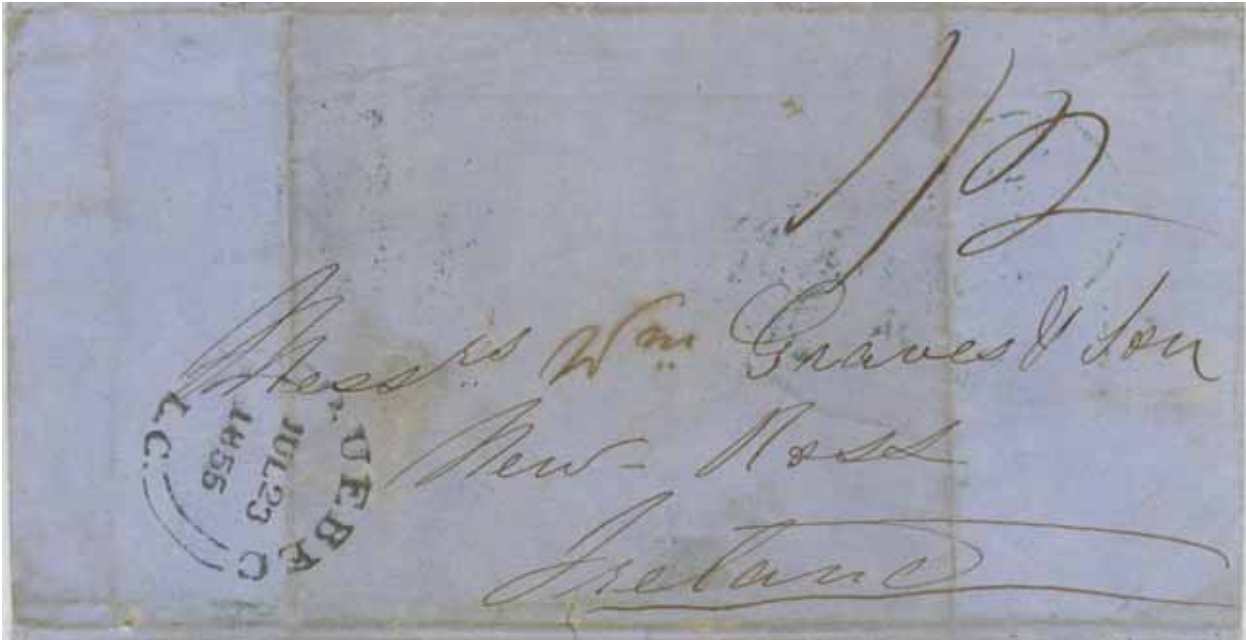 1/2
Mess.rs Wm. Graves & Son
New-Ross
Ireland
QUEBEC
JUL 23
1855
L.C.